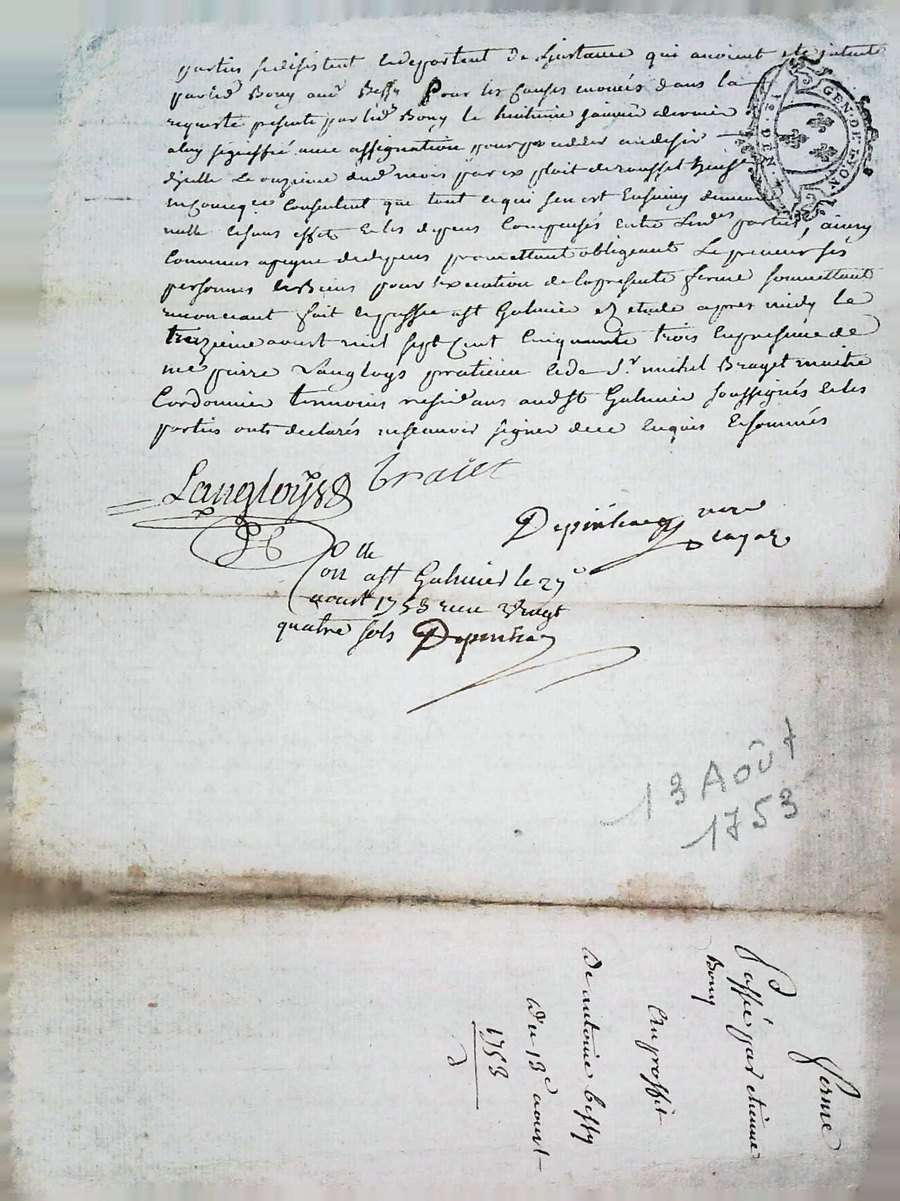 parties se desistent et departent de l'instance qui avoient été intenté
par led. Bouy aud. Bessy Pour les causes enoncés dans la
requeste presenté par led. Bouy le huitieme janvier dernier
a luy signiffié avec assignation pour proceder au desir
d'jcelle Le onzieme dud. mois par exploit de rousset huissr.
consentent que tout ce qui s'en est Ensuivy demeure
nulle et sans effet et les depens Compensés Entre Lesd. parties, ainsy
Convenus a peyne de depens promettant obligeant Le preneur ses
personne et Biens pour l'execution de la presente ferme soumettant
renonceant fait et passé a st Galmier et etude apres midy le
treizieme aoust mil sept Cent Cinquante trois En presence de
me pierre Langloys praticien et de Sr. michel Brayet maitre
Cordonnier temoins residans aud. St Galmier soussignés et les
parties onts declarés ne scavoir signer de ce Enquis Et sommés
Langloys braiet
Depinhac nore
royal
Colle
a st Galmier le 27e
aoust 1753 recu vingt
quatre sols Depinhac
GEN. DE LYON
13 Août
1753
ferme
Passée par etienne
Bouy
Au proffit
De antoine bessy
du 13e aoust
1753